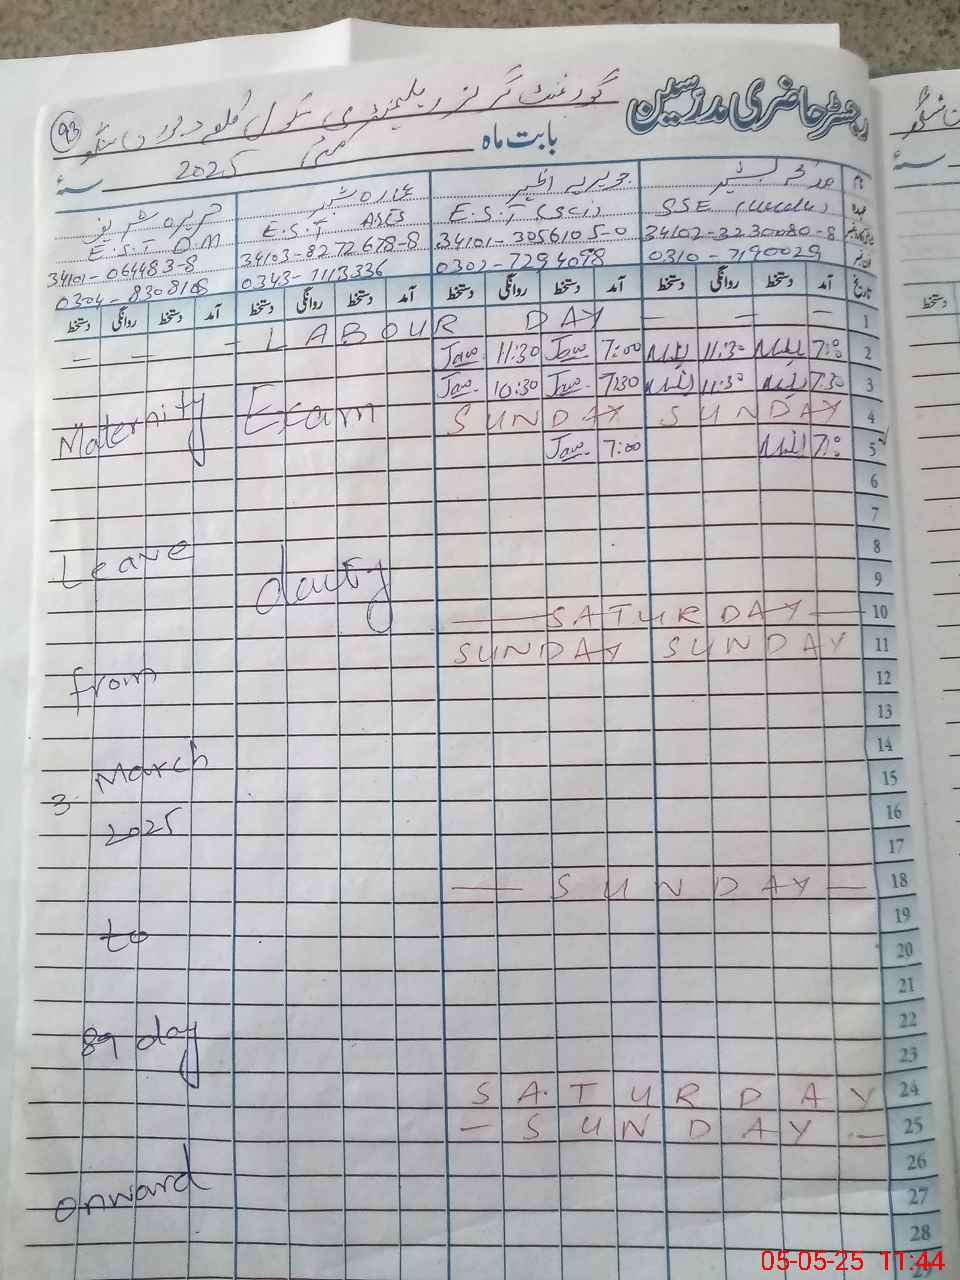 رجسٹر حاضری مدرسین
93
گورنمنٹ گرلز ایلیمنٹری سکول
بابت ماہ مئی 2025 سنہ
نام
E.S.T (Sci) SSE (Urdu)
E.S.T
E.S.T
34102-3230080-8
34101-3056105-0
34103-8272678-8
34101-064483-8
0310-7190029
0302-7294098
0343-7113336
0304-8308108
تاریخ آمد دستخط روانگی دستخط آمد دستخط روانگی دستخط آمد دستخط روانگی دستخط آمد دستخط روانگی دستخط
1 - - - LABOUR DAY - - -
2 7:00 11:30 7:00 11:30
3 7:30 11:30 7:30 10:30
4 SUNDAY SUNDAY
5 7:00 7:00
6
7
8
9
10 SATURDAY
11 SUNDAY SUNDAY
12
13
14
15
16
17
18 SUNDAY
19
20
21
22
23
24 SATURDAY
25 - SUNDAY -
26
27
28
29
Exam
dauty
Maternity
Leave
from
3 March
2025
to
89 day
onward
دستخط
05-05-25 11:44